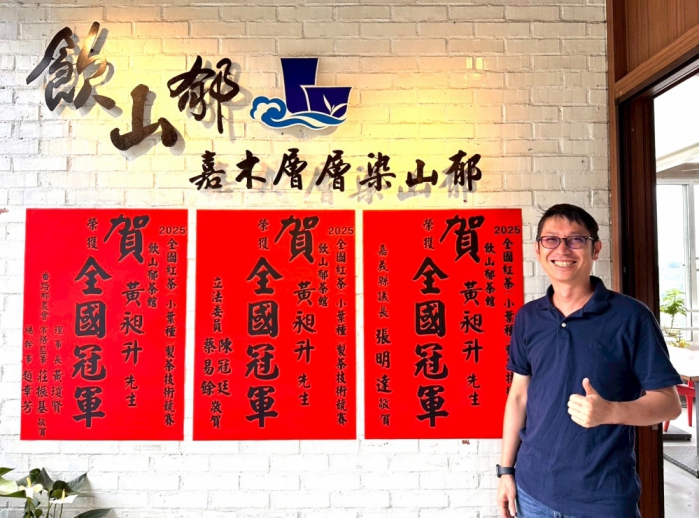 飲山郁
嘉木層層染山郁
2025
全國紅茶 小葉種 製茶技術競賽
飲山郁茶館
賀 黃昶升 先生
榮獲
全國冠軍
理事長 黃瑄賢
莊振基
總幹事 趙幸芳
敬賀
2025
全國紅茶 小葉種 製茶技術競賽
飲山郁茶館
賀 黃昶升 先生
榮獲
全國冠軍
立法委員 陳冠廷
蔡易餘 敬賀
2025
全國紅茶 小葉種 製茶技術競
飲山郁茶館
賀 黃昶升 先生
榮獲
全國冠軍
嘉義縣議長 張明達 敬賀